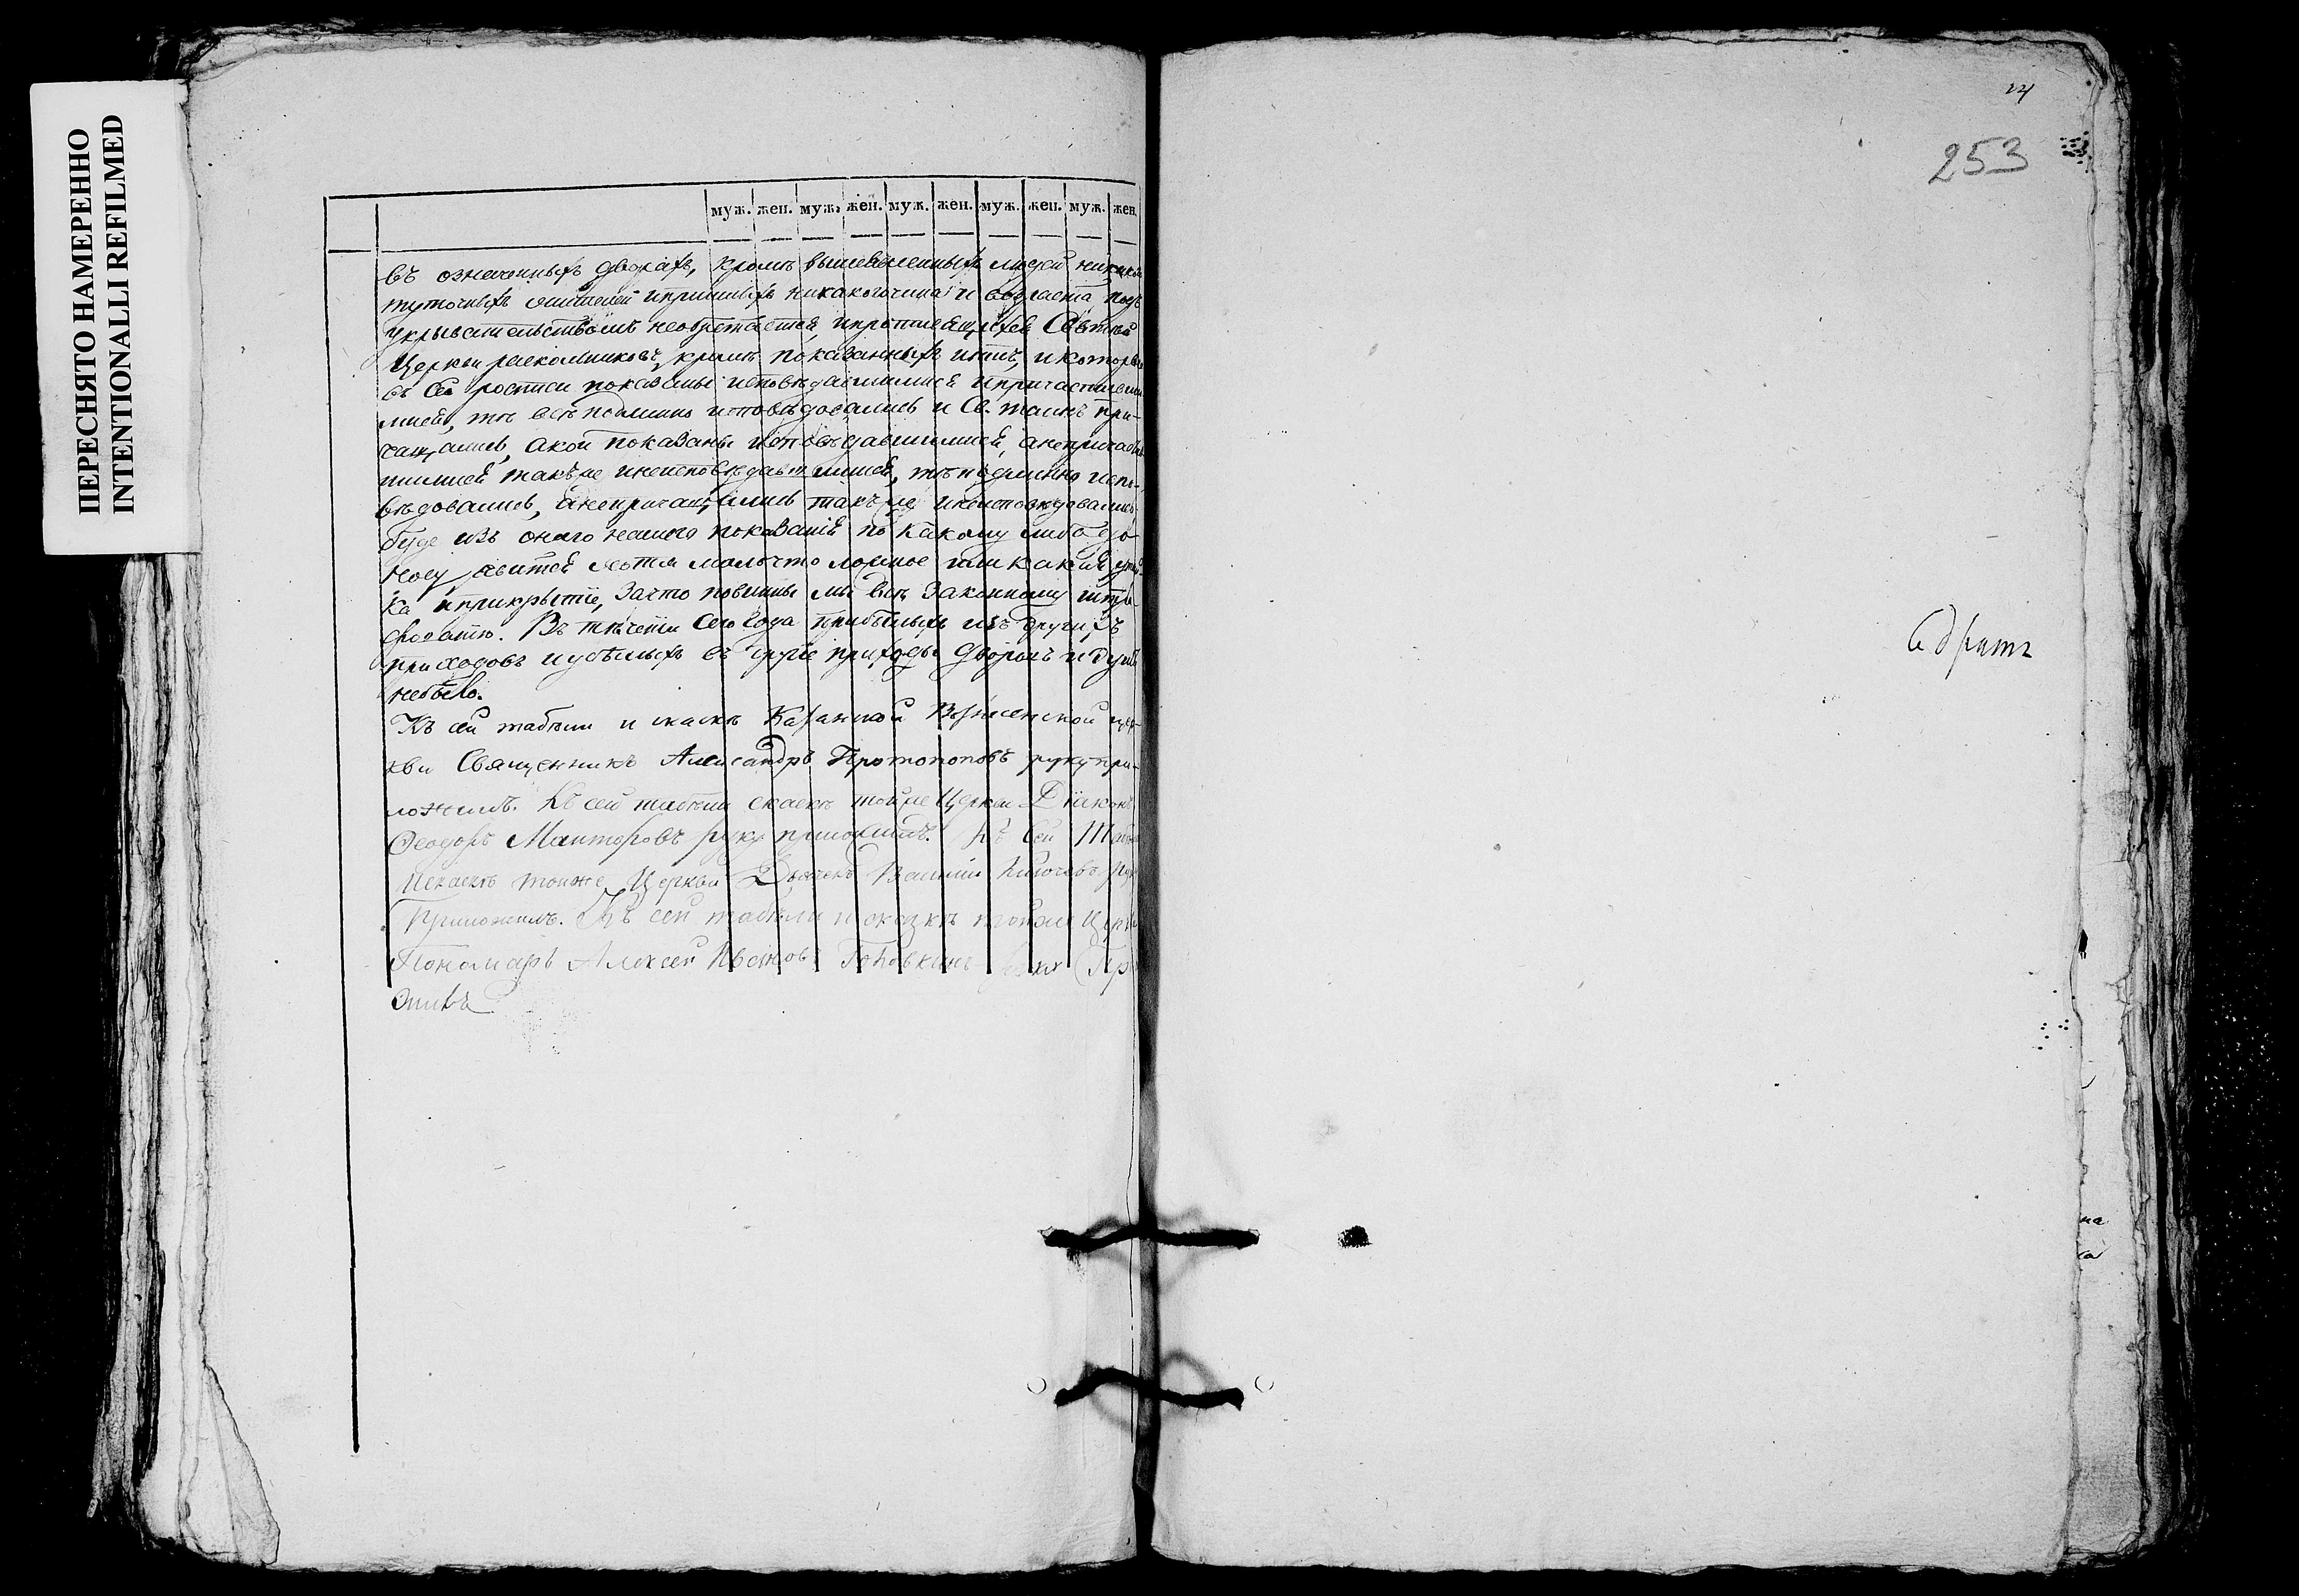 ПЕРЕСНЯТО НАМЕРЕННО
INTENTIONALLI REFILMED
муж. жен. муж. жен. муж. жен. муж. жен. муж. жен.
въ означенныхъ дворахъ, кромѣ вышеявленныхъ людей никаких
жителей и пришлыхъ никакого чина и возраста подъ
укрывательствомъ необретается, и противящихся Святѣй
Церкви раскольниковъ, кромѣ показанныхъ нѣтъ, и которые
въ сей росписи показаны исповѣдавшимися и причастивши
мися, тѣ всѣ подлинно исповѣдовались и Св. таинъ при-
чащались, а кои показаны исповѣдавшимися, а непричасти
шимися такъ же и неисповѣдавшимися, тѣ подлинно испо-
вѣдовались, а непричащались такъ же и неисповѣдовались
буде изъ онаго нашего показанія по какому либо до-
носу явится хотя мало что ложное или какая утай
ка и прикрытіе, за что повинны мы всѣ законному штра-
фованію. Въ теченіи сего года прибылыхъ изъ другихъ
приходовъ и убылыхъ въ другіе приходы дворовъ и душъ
небыло.
Къ сей табели и скаскѣ Казанской Вознесенской цер-
кви Священникъ Александръ Протопоповъ руку при-
ложилъ. Къ сей табели скаскѣ тойже Церкви Діаконъ
Феодоръ Манторовъ руку приложилъ. Къ сей Табели
искаскѣ тоиже Церкви Дьячекъ Василій Ключевъ руку
Приложилъ. Къ сей табели и сказкѣ тойже Церкви
Пономарь Алексей Ивановъ Головкинъ руку При
ожилъ
24
253